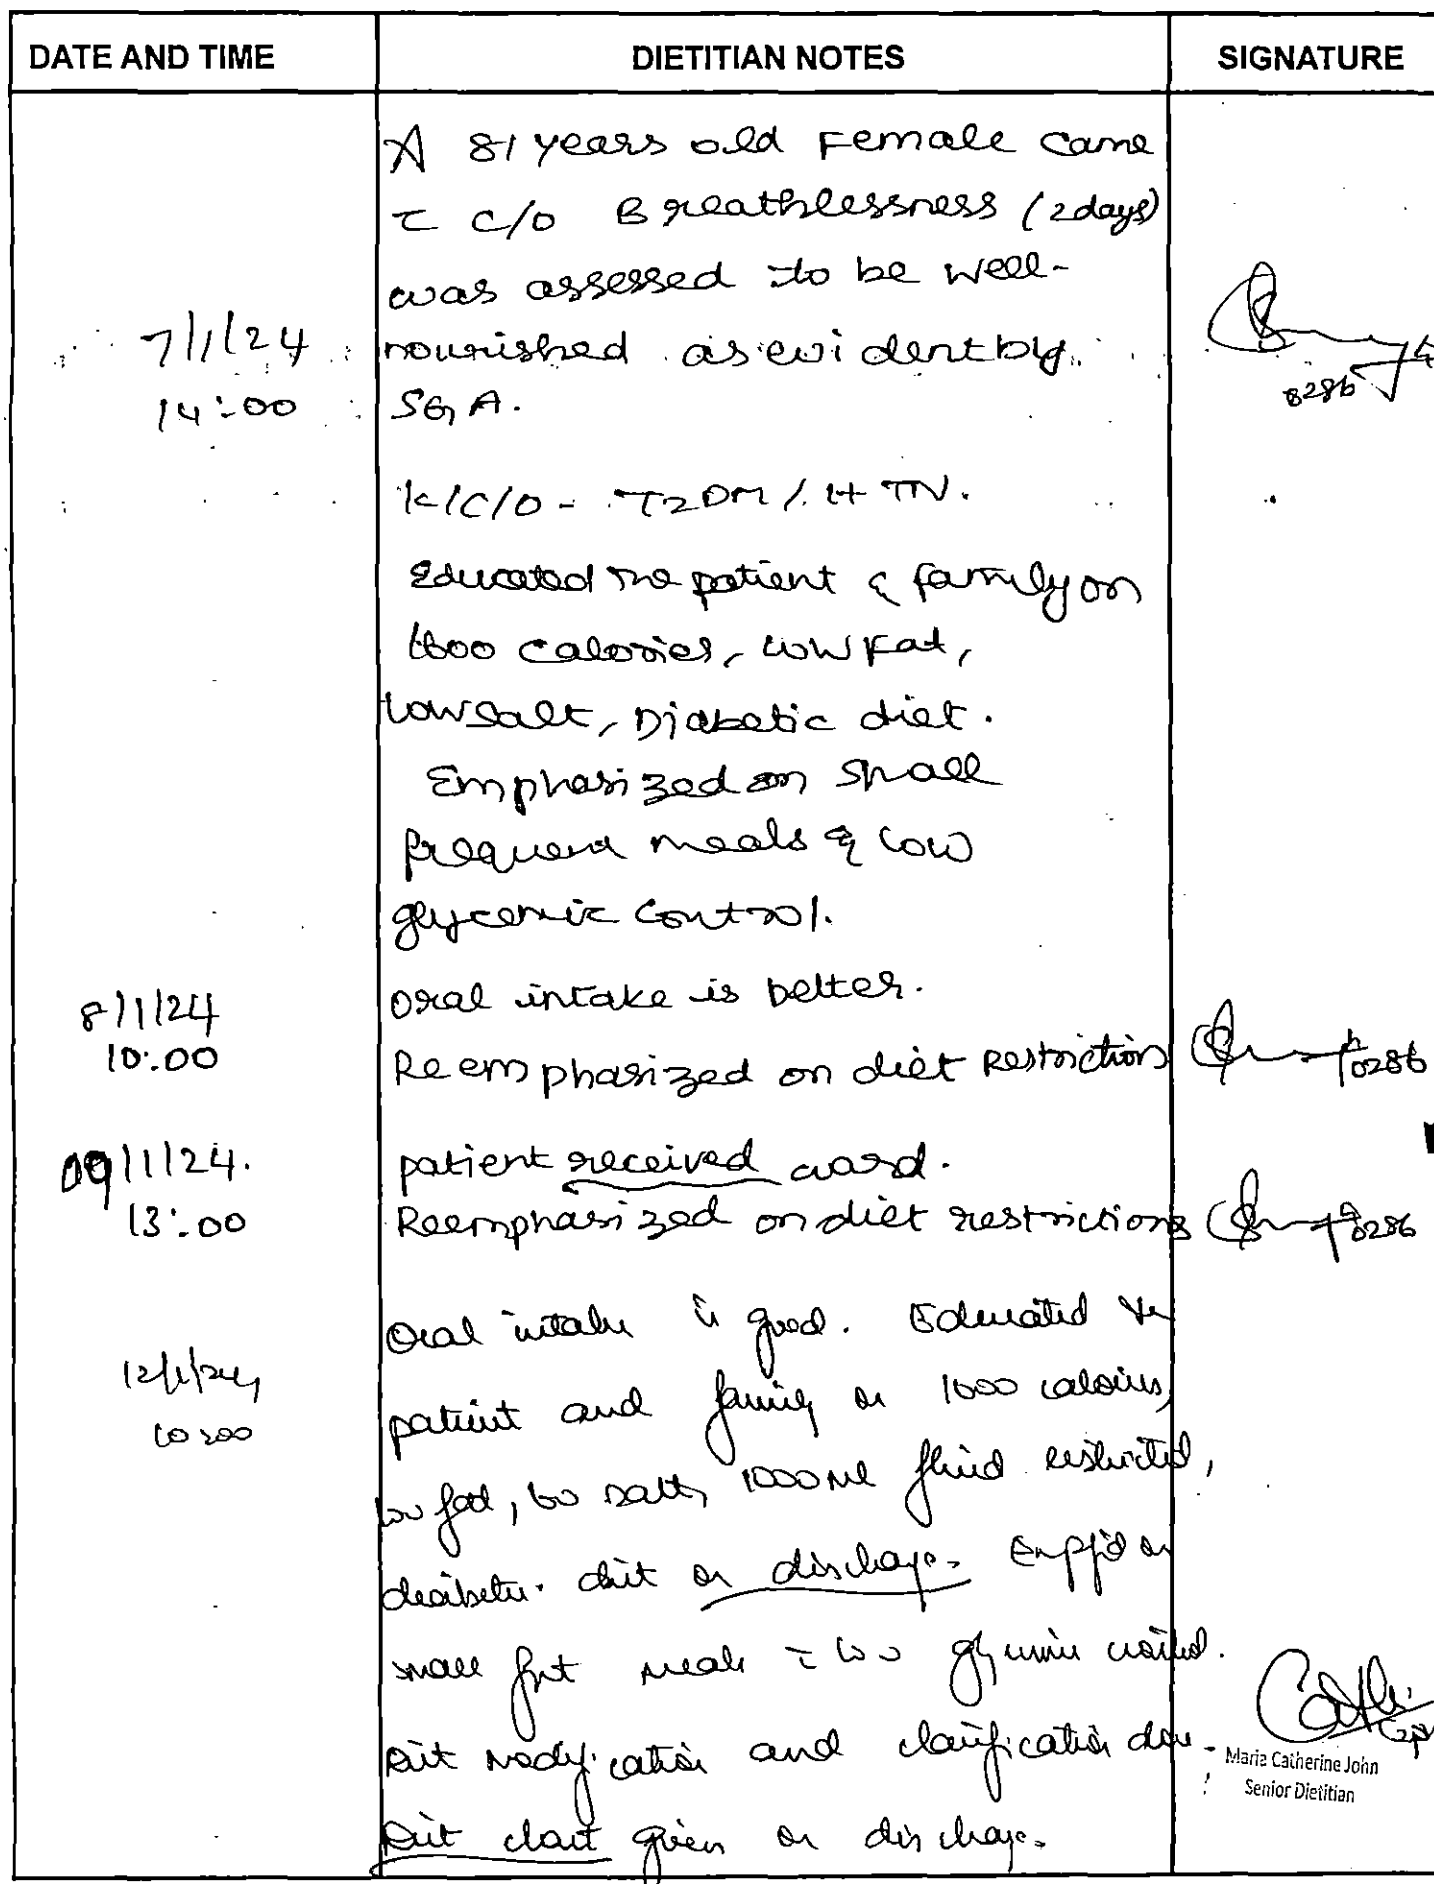 DATE AND TIME DIETITIAN NOTES SIGNATURE
A 81 years old Female came
c̄ c/o Breathlessness (2days)
was assessed to be well-
7/1/24 nourished as evident by
14:00 SGA.
8286
K/C/O - T2DM / HTN.
Educated the patient & family on
calories, low Fat,
low salt, Diabetic diet.
Emphasized on small
frequent meals & low
glycemic control.
8/1/24 oral intake is better.
10:00 Reemphasized on diet Restrictions 8286
09/1/24. patient received ward.
13:00 Reemphasized on diet restrictions 8286
Oral intake is good. Educated the
12/1/24 patient and family on calories,
10:00 low fat, low salt, 1000ml fluid restricted,
diabetic diet on discharge. on
small frqt meals c̄ low glycemic control.
Diet modification and clarification done.
Maria Catherine John
Senior Dietitian
Diet chart given on discharge.